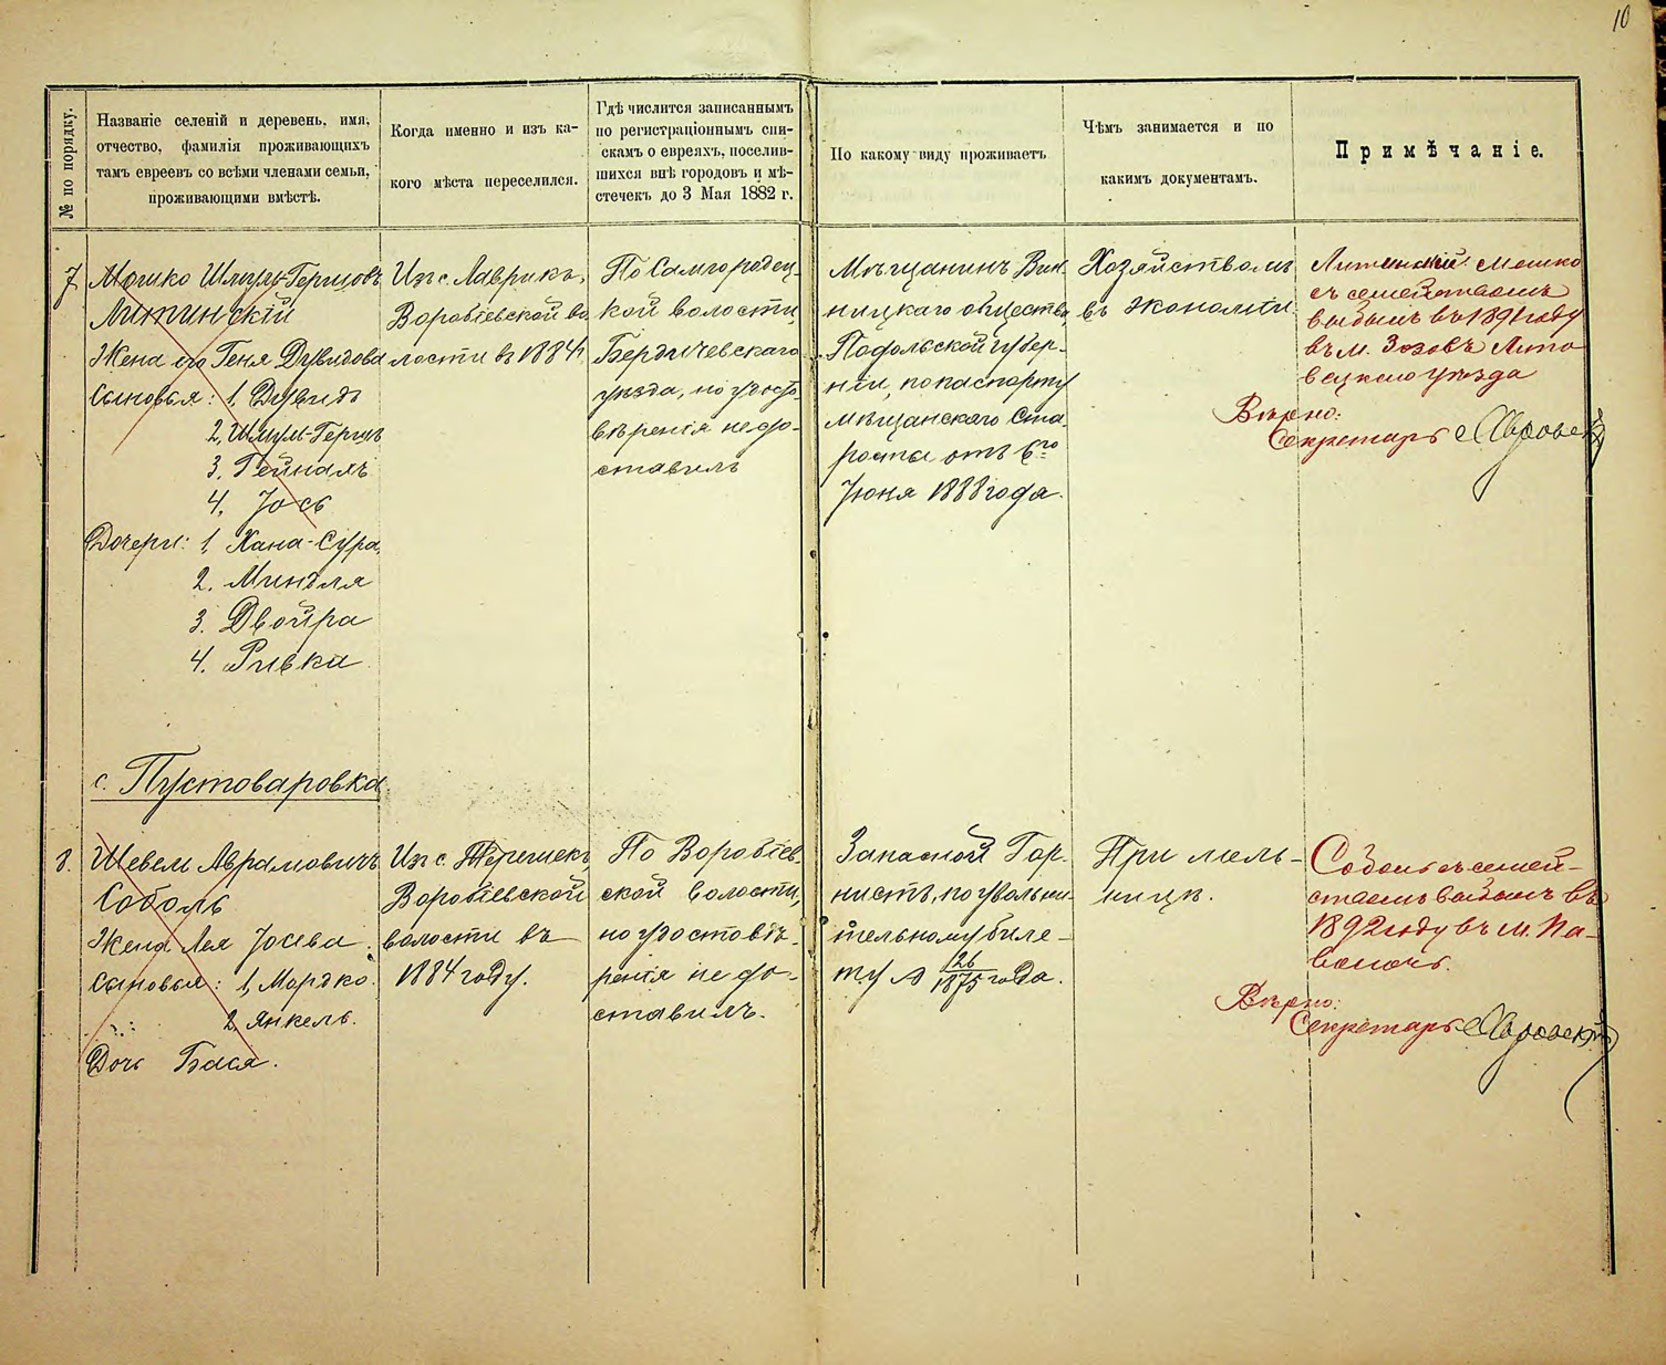 10
№ по порядку.
Названіе селеній и деревень, имя,
отчество, фамилія проживающихъ
тамъ евреевъ со всѣми членами семьи,
проживающими вмѣстѣ.
Когда именно и изъ ка-
кого мѣста переселился.
Гдѣ числится записаннымъ
по регистраціоннымъ спи-
скамъ о евреяхъ, поселив-
шихся внѣ городовъ и мѣ-
стечекъ до 3 Мая 1882 г.
По какому виду проживаетъ
Чѣмъ занимается и по
какимъ документамъ.
Примѣчаніе.
7
Мошко Шмуль-Гершовъ
Литинскій
Жена его Геня Дувидова
Сыновья: 1, Дувидъ
2, Шмуль-Гершъ
3. Гейнахъ
4, Іось
Дочери: 1, Хана-Сура,
2. Миндля
3. Двойра
4. Ривка
Изъ с. Лаврикъ,
Воробіевской во
лости въ 1884 г.
По Самгородец-
кой волости,
Бердичевскаго
уѣзда, но удосто
вѣренія не до-
ставилъ
Мѣщанинъ Вин-
ницкаго общества,
Подольской губер-
ніи, по паспорту
мѣщанскаго Ста-
росты отъ 6го
Іюня 1888 года.
Хозяйствомъ
въ экономіи.
Литинскій Мошко
съ семействомъ
выбылъ въ 1891 году
въ м. Зозовъ Липо
вецкаго уѣзда
Вѣрно:
Секретарь
с. Пустоваровка
8.
Шевель Аврамовичъ
Соболь
Жена Лея Іосева
Сыновья: 1, Мордко
2, Янкель.
Дочь Бася.
Изъ с. Теремекъ,
Воробіевской
волости въ
1884 году.
По Воробіев-
ской волости,
но удостовѣ-
ренія не до-
ставилъ.
Запасной Гор-
нистъ, по увольни-
тельному биле-
ту № 26
1875 года.
При мель-
ницѣ.
Соболь съ семей-
ствомъ выбылъ въ
1892 году въ м. Па-
волочь.
Вѣрно:
Секретарь